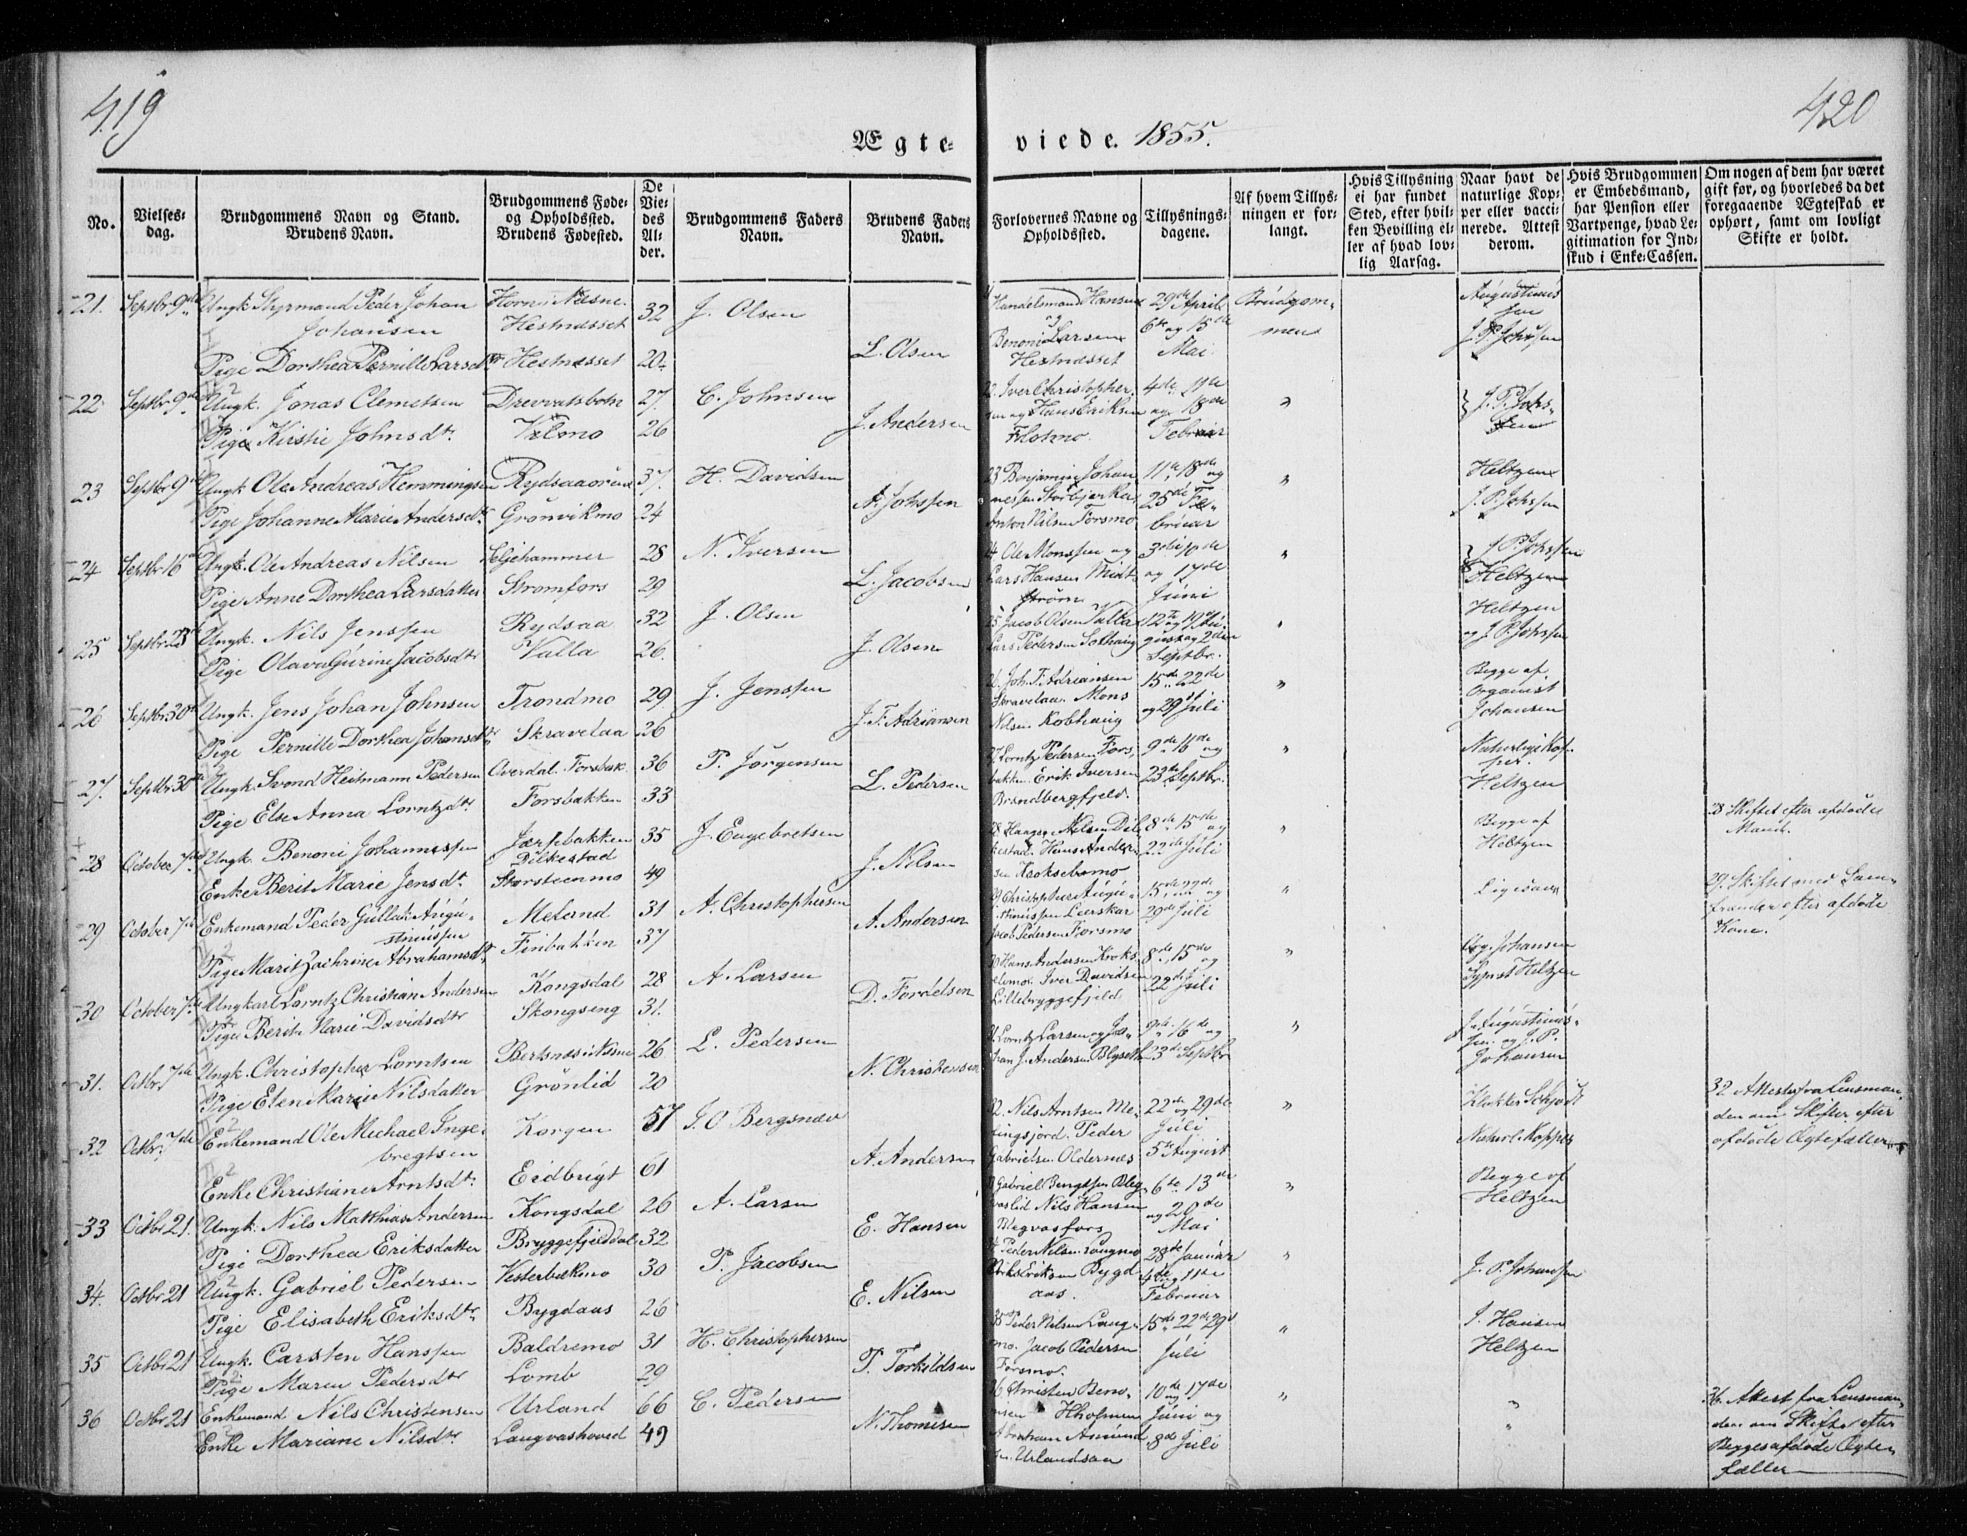 419
420
Ægteviede. 1855.
No.
Vielsesdag.
Brudgommens Navn og Stand. Brudens Navn.
Brudgommens Føde- og Opholdssted. Brudens Fødested.
De Viedes Alder.
Brudgommens Faders Navn.
Brudens Faders Navn.
Forlovernes Navne og Opholdssted.
Tillysningsdagene.
Af hvem Tillysningen er forlangt.
Hvis Tillysning ei har fundet Sted, efter hvilken Bevilling eller af hvad lovlig Aarsag.
Naar havt de naturlige Kopper eller vaccinerede. Attest derom.
Hvis Brudgommen er Embedsmand, har Pension eller Vartpenge, hvad Legitimation for Indskud i Enke-Cassen.
Om nogen af dem har været gift før, og hvorledes da det foregaaende Ægteskab er ophørt, samt om lovligt Skifte er holdt.
21. Septbr 9de Ungk. Styrmand Peder Johan Johansen Horn i Næsne Hestnæsset 32 J. Olsen Handelsmand Hansen og 29de April Brudgommen Augustinus
Pige Dorthea Pernille Larsdtr Hestnæsset 20 L. Olsen Benoni Larsen Hestnæsset 6te og 15de Mai
22 Septbr 9de Ungk. Jonas Clemetsen Drevvatsbotn 27 C. Johnsen Iver Christophersen og Hans Eriksen Flotmo 4de 11de og 18de Februar "
Pige Kirstie Johnsdtr. 26 J. Andersen
23 Septbr 9de Ungk Ole Andreas Hemmingsen Rydsaaoren 37 H. Davidsen 23 Benjamin Johannessen Storbjerken 11te 18de og 25de Februar " Heltzen
Pige Johanne Marie Andersdtr Grønvikmo 24 A. Johssen Anton Nilsen Forsmo
24 Septbr 16de Ungk. Ole Andreas Nilsen Seljehammer 28 N. Iversen 24 Ole Monssen og 3die 10de og 17de Juni "
Pige Anne Dorthea Larsdatter Stromfors 29 L. Jacobsen Lars Hansen Midtstrøm Heltzen
25 Septbr 23de Ungk. Nils Jenssen Rydsaa 32 J. Olsen 25 Jacob Olsen Valla 12te og 19de August og 2den Septbr. " Heltzen
Pige Olava Gurine Jacobsdtr Valla 26. J. Olsen Lars Pedersen Solhaug
26 Septbr 30te Ungk. Jens Johan Johnsen Trondmo 29 J. Jenssen 26. Joh. F. Adriansen Skravelaa. Mons Nilsen Kobhaug 15de 22de og 29de Juli " Begge af Organist Johansen
Pige Pernille Dorthea Johansdtr Skravelaa 26 J. F. Adriansen
27. Septbr 30te Ungk. Svend Heitmann Pedersen Overdal. Forsbak. 36 P. Jørgensen 27. Lorntz Pedersen Forsbakken. Erik Iversen Brandbergfjeld. 9de 16de og 23de Septbr. " Naturlige Kopper. Heltzen
Pige Else Anna Lorntzdtr Forsbakken 33 L. Pedersen
28 October 7de Ungk. Benoni Johannessen Jarpbakken Dilkestad 35 J. Engebretsen 28 Haagen Nilsen Dilkestad. Hans Andersen Kroksebomo 8de 15de og 22de Juli " Begge af Heltzen 28 Skiftet efter afdøde Mand.
Enken Berit Marie Jensdtr. Storsteenmo 49 J. Nilsen
29 October 7de Enkemand Peder Gullak Augustinussen Meland 31 A. Christophersen 29 Christopher Augustinussen Leerskar 15de 22de og 29de Juli " Ligesaa 29. Skiftet med Samfrænder efter afdøde Kone.
Pige Marit Zachrine Abrahamsdtr. Finbakken 37 A. Andersen Jacob Pedersen Forsmo
30 October 7de Ungkarl Lorntz Christian Andersen Kongsdal 28 A. Larsen 30 Hans Andersen Iver Davidsen Lillebryggefjeld 8de 15de og 22de Juli " Org. Johansen Heltzen
Pige Berit Marie Davidsdtr Skongseng 31. D. Fordelsen
31. Octbr 7de Ungk. Christopher Lorntsen Bertsnæs i Næsne 26 L. Pedersen 31. Lorntz Larsen og Johan J. Andersen 9de 16de og 23de Septbr " J. Augustinussen. og J. P. Johansen
Pige Elen Marie Nilsdatter Grønlid 20 N. Christensen
32 Octbr. 7de Enkemand Ole Michael Ingebregtsen Korgen 57 J. O Bergsnæv 32. Nils Arntsen Peder Gabrielsen Oldernæs 22de og 29de Juli 5te August " Klokker Schjødt Naturl. Kopper 32 Attester fra Lensmanden om Skifter efter afdøde Ægtefæller
Enke Christiane Arntsdtr. Eidbrigt 61 A. Andersen
33 Octbr 21. Ungk. Nils Matthias Andersen Kongsdal 26 A. Larsen Gabriel Bengtssen Nils Hansen Blegvasfors 6te 13de og 20de Mai " Begge af Heltzen
Pige Dorthea Eriksdatter Bryggefjelddal 32 E. Hansen
34. Octbr 21 Ungk. Gabriel Pedersen Vesterbækmo 30 P. Jacobsen Peder Nilsen Langmo Eriksen Bygdaas. 28de Januar 4de og 11te Februar " J. P. Johanssen
Pige Elisabeth Eriksdtr Bygdaas 26 E. Nilsen
35 Octbr 21 Ungk. Carsten Hanssen Baldremo 31 H. Christophersen 35 Peder Nilsen Langmo. Jacob Pedersen Forsmo. 15de 22de 29de Juli " J. Hansen Heltzen
Pige Maren Pedersdtr Lomb 29 P. Torkildsen
36 Octbr 21 Enkemand Nils Christensen Urland 66 C. Pedersen 36 Christen Abraham Urlandsaa 10de og 17de Juni og 8de Juli " " 36. Attest fra Lensmanden om Skifte efter Begges afdøde Ægtefæller
Enke Mariane Nilsdtr. Langvashoved 49 N. Thomesen "